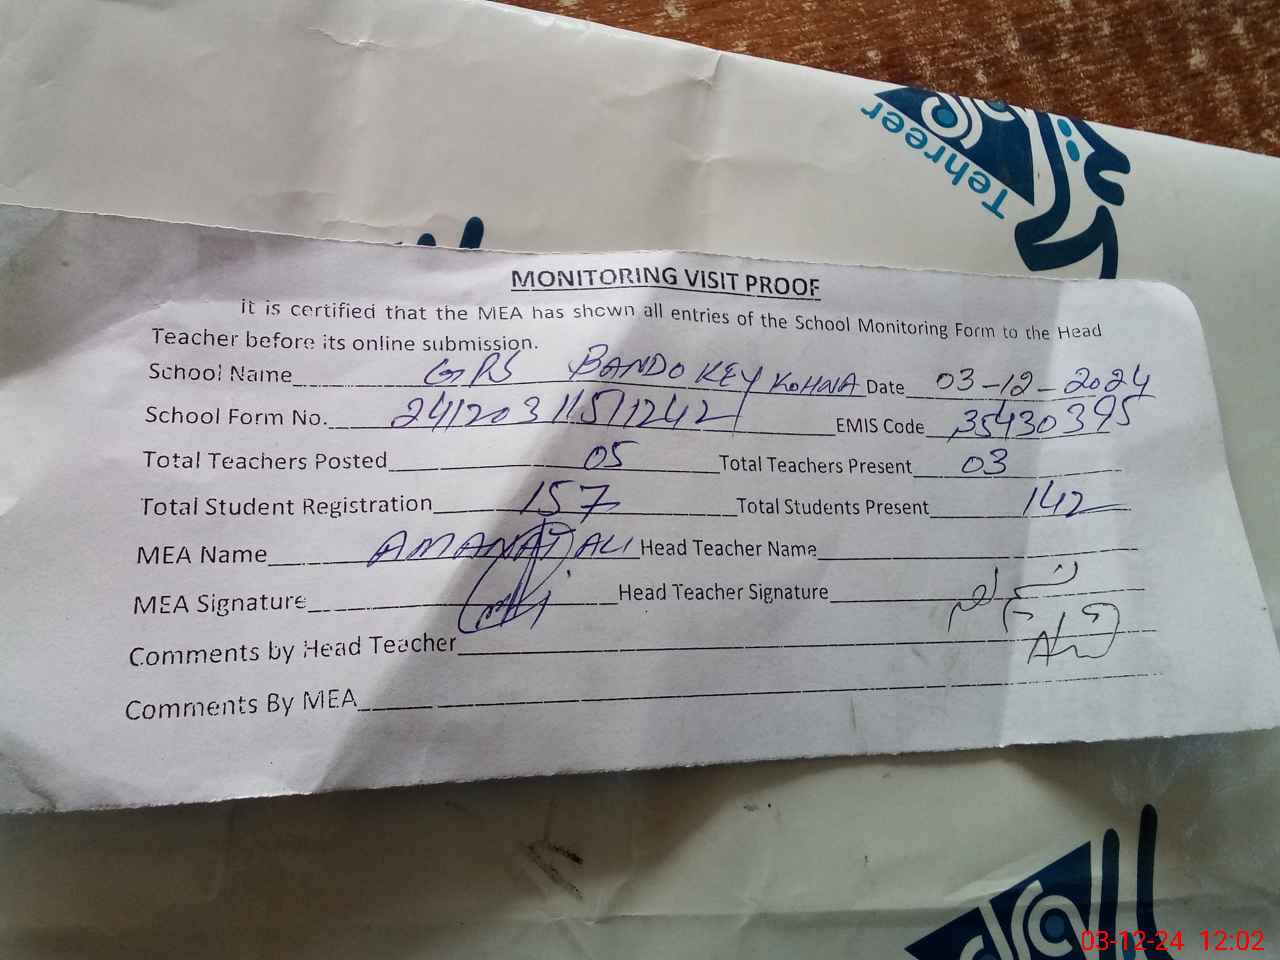 Tehreer
MONITORING VISIT PROOF
it is certified that the MEA has shown all entries of the School Monitoring Form to the Head
Teacher before its online submission.
School Name GPS BANDO KEY KOHNA Date 03-12-2024
School Form No. EMIS Code 35430395
Total Teachers Posted 05 Total Teachers Present 03
Total Student Registration 157 Total Students Present 142
MEA Name AMANAT ALI Head Teacher Name
MEA Signature Head Teacher Signature
Comments by Head Teacher
Comments By MEA
03-12-24 12:02